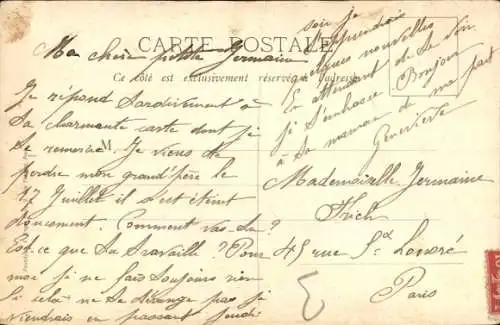 CARTE POSTALE
Ce côté est exclusivement réservé à l'adresse
M
Ma chère petite Germaine
Je répond tardivement à
ta charmante carte dont je
te remercie. Je viens de
perdre mon grand'père le
17 Juillet il s'est éteint
doucement. Comment vas-tu ?
Est-ce que tu travaille ? Pour
moi je ne fais toujours rien
Si cela ne te dérange pas je
viendrais en passant jeudi
soir je
t'apprendrais
quelques nouvelles
En attendant de te voir
je t'embrasse Bonjour
à ta maman de ma part
Geneviève
Mademoiselle Germaine
45 rue St
Paris